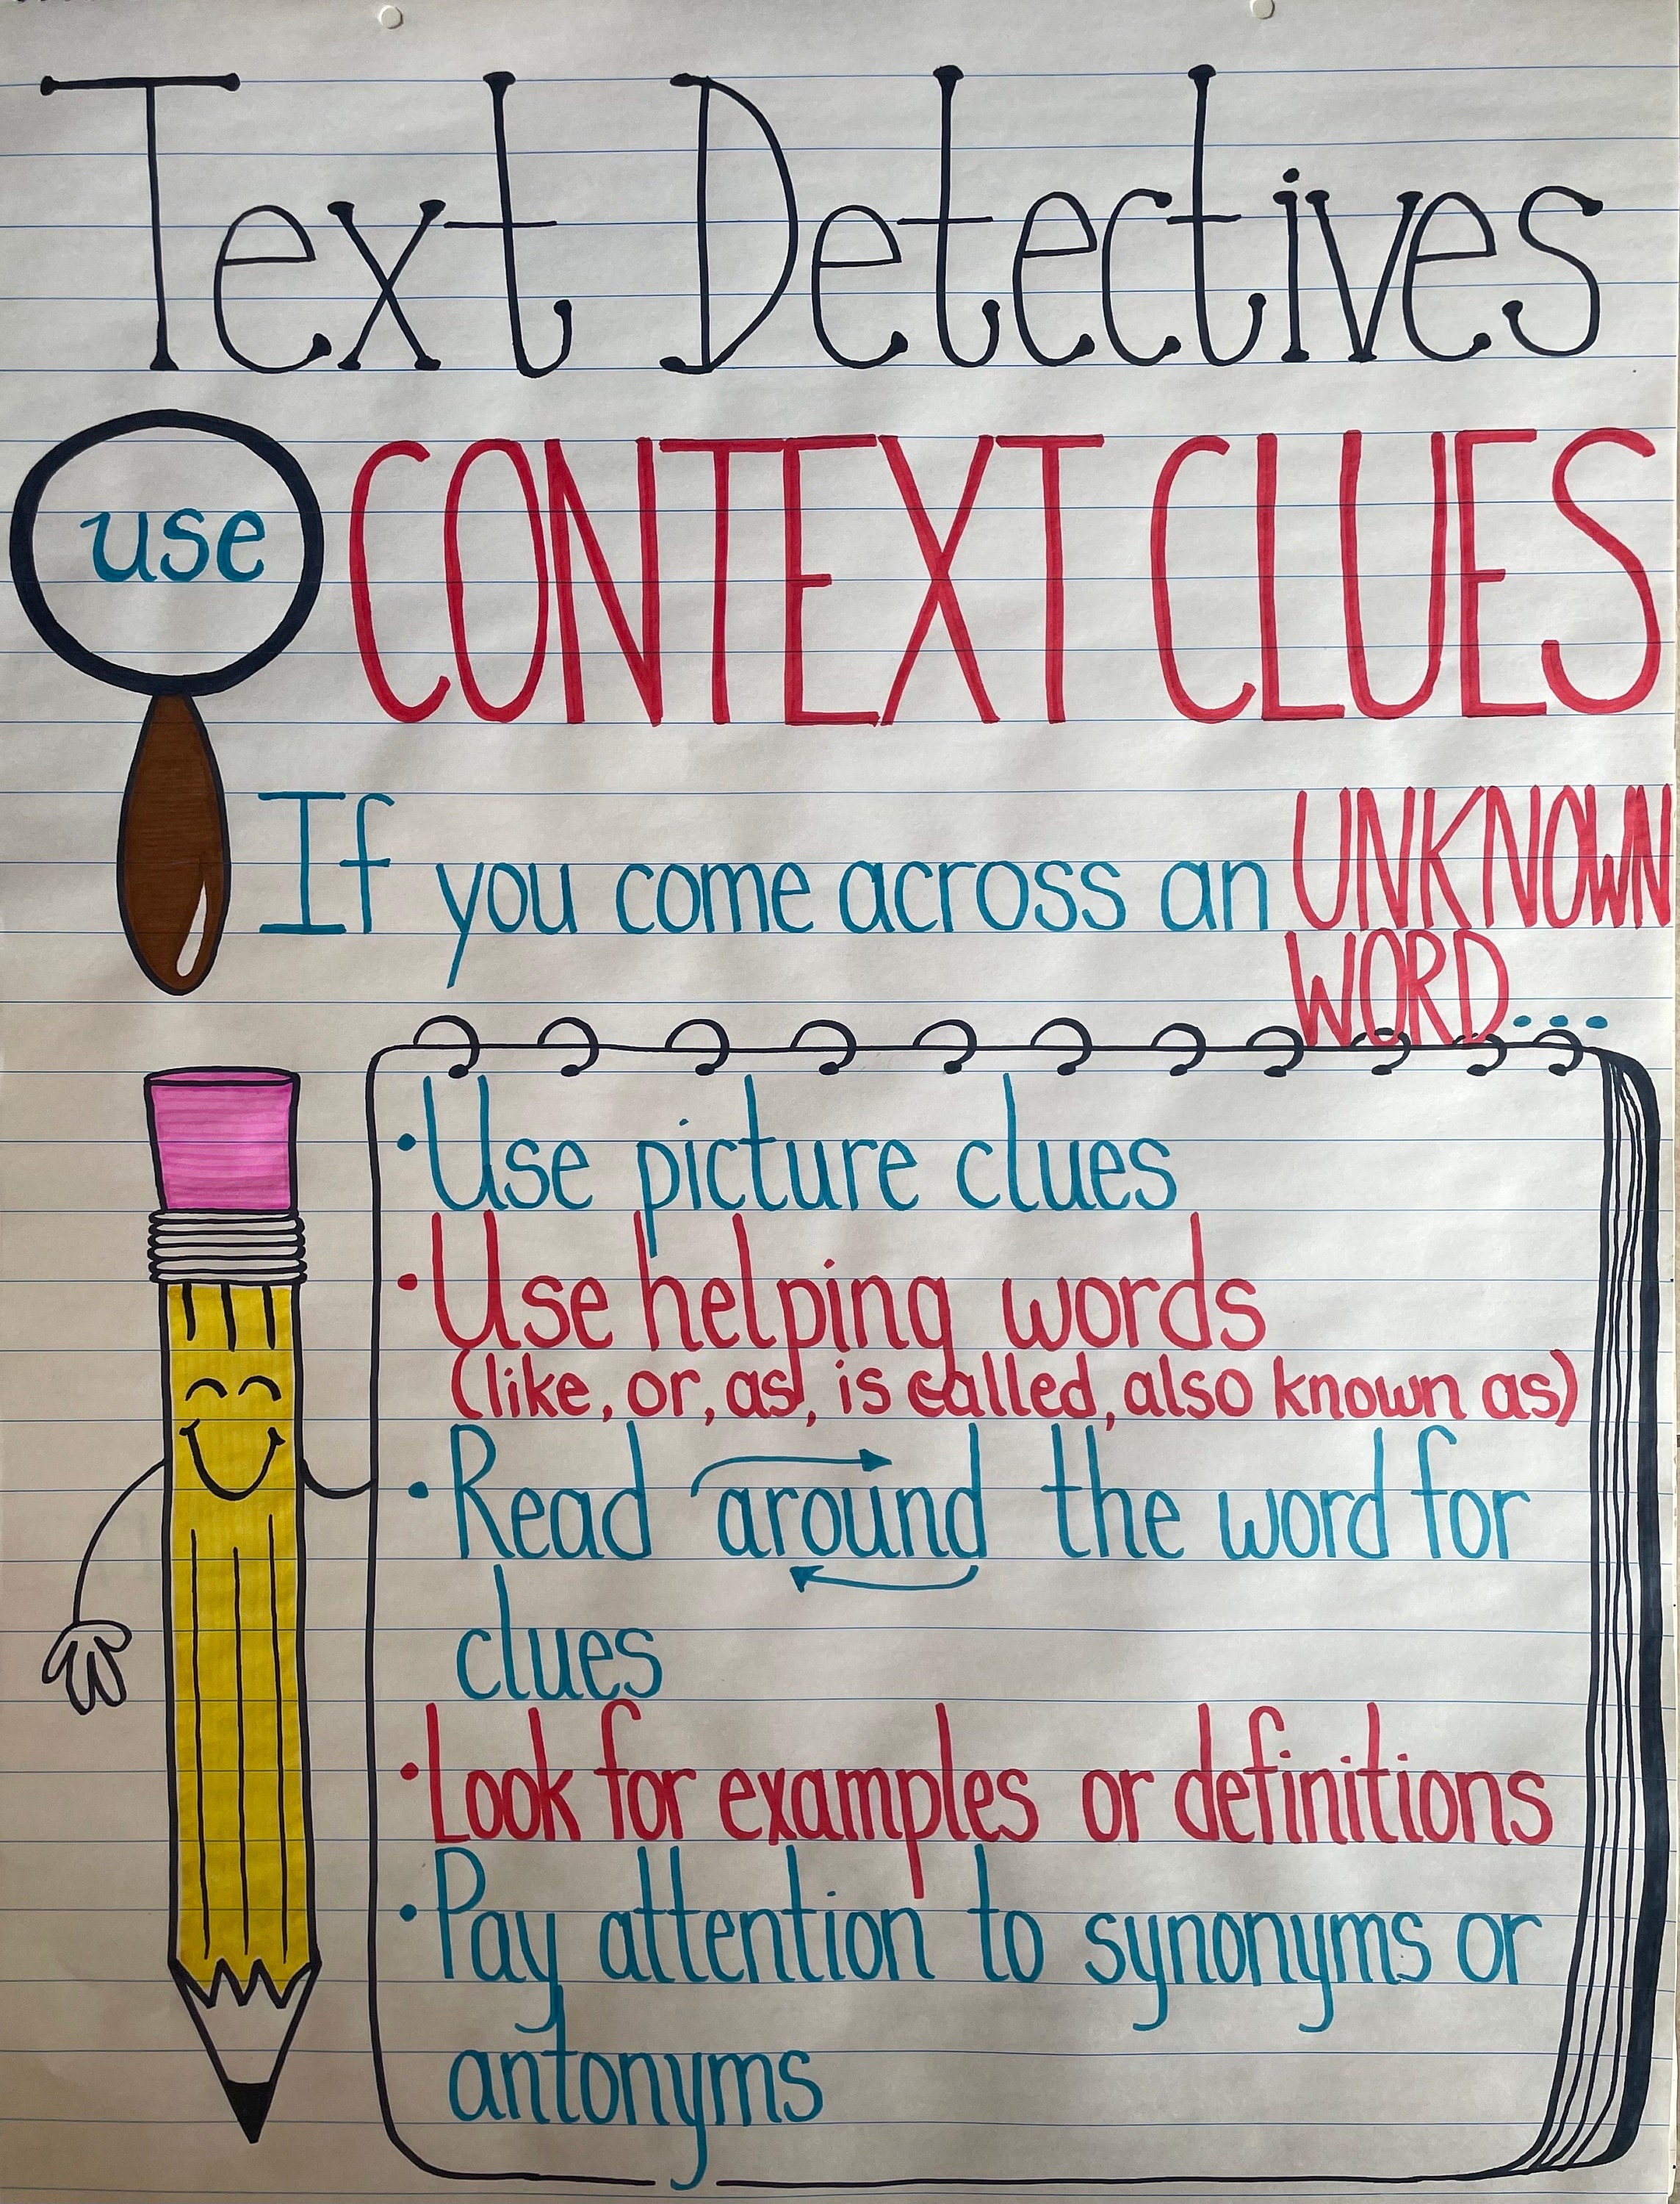 Text Detectives
use CONTEXT CLUES
If you come across an UNKNOWN
WORD...
•Use picture clues
•Use helping words
(like, or, as, is called, also known as)
•Read around the word for
clues
•Look for examples or definitions
•Pay attention to synonyms or
antonyms